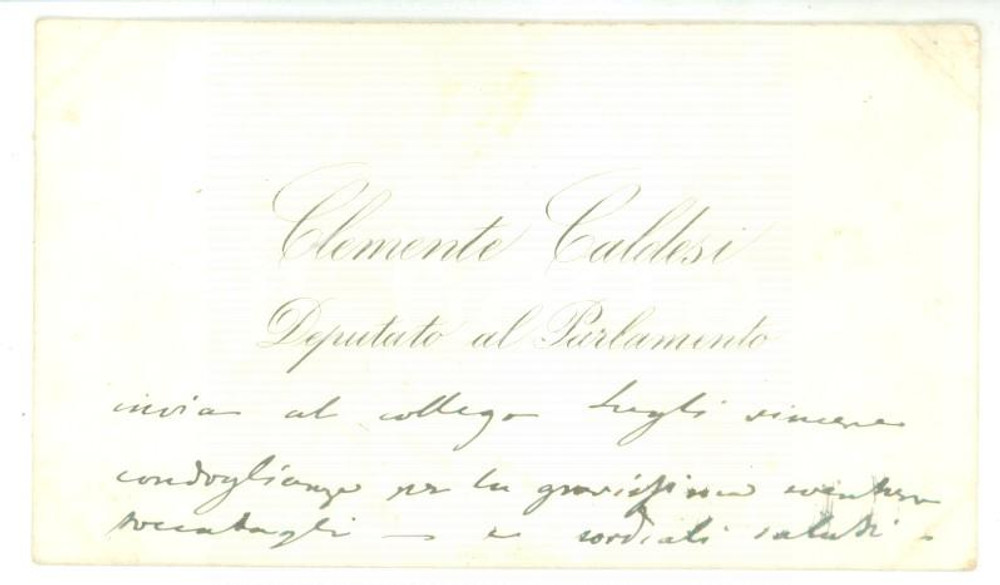 Clemente Caldesi
Deputato al Parlamento
invia al collega sincere
condoglianze per la gravissima sventura
toccatagli — e cordiali saluti.